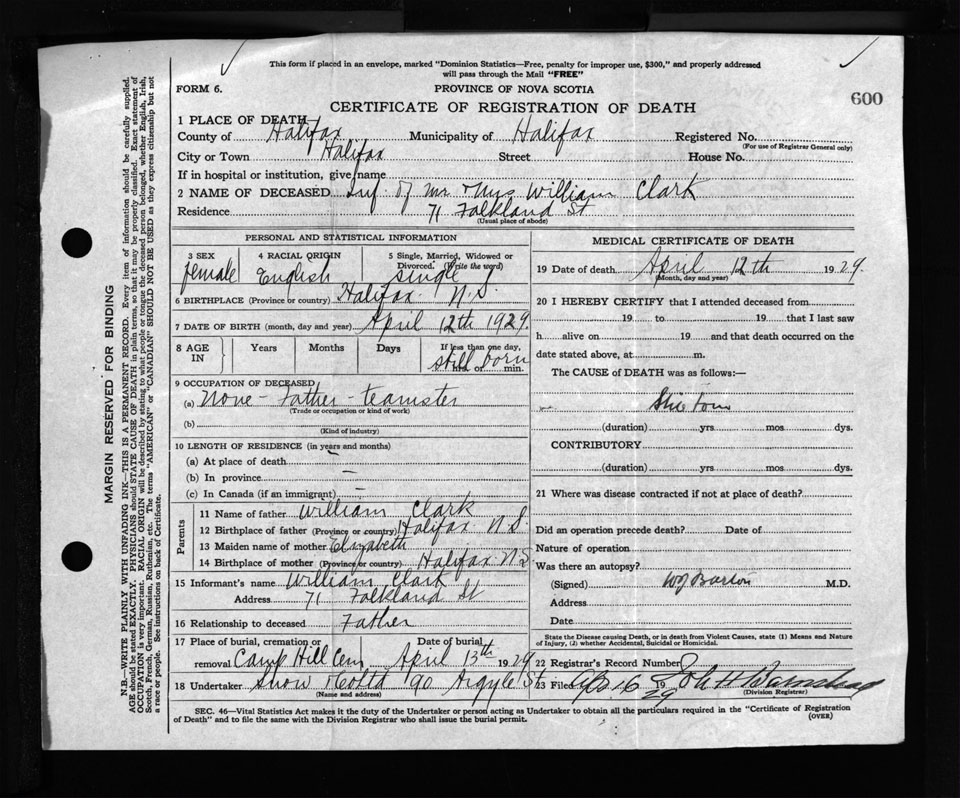 This form if placed in an envelope, marked "Dominion Statistics—Free, penalty for improper use, $300," and properly addressed
will pass through the Mail "FREE"
FORM 6. PROVINCE OF NOVA SCOTIA
CERTIFICATE OF REGISTRATION OF DEATH
600
1 PLACE OF DEATH
County of Halifax Municipality of Halifax Registered No.
(For use of Registrar General only)
City or Town Halifax Street House No.
If in hospital or institution, give name
2 NAME OF DECEASED Inf of Mr & Mrs William Clark
Residence 71 Falkland St
(Usual place of abode)
PERSONAL AND STATISTICAL INFORMATION
3 SEX 4 RACIAL ORIGIN 5 Single, Married, Widowed or
Divorced. (Write the word)
female English single
6 BIRTHPLACE (Province or country) Halifax N.S.
7 DATE OF BIRTH (month, day and year) April 12th 1929
8 AGE IN Years Months Days If less than one day,
hrs. or min.
still born
9 OCCUPATION OF DECEASED
(a) None - Father - teamster
(Trade or occupation or kind of work)
(b)
(Kind of industry)
10 LENGTH OF RESIDENCE (in years and months)
(a) At place of death
(b) In province
(c) In Canada (if an immigrant)
Parents
11 Name of father William Clark
12 Birthplace of father (Province or country) Halifax N.S.
13 Maiden name of mother Elizabeth
14 Birthplace of mother (Province or country) Halifax N.S
15 Informant's name William Clark
Address 71 Falkland St
16 Relationship to deceased Father
17 Place of burial, cremation or Date of burial
removal Camp Hill Cem April 13th 1929
18 Undertaker Snow & Co Ltd 90 Argyle St
(Name and address)
MEDICAL CERTIFICATE OF DEATH
19 Date of death April 12th 1929.
(Month, day and year)
20 I HEREBY CERTIFY that I attended deceased from
19 to 19 that I last saw
h alive on 19 and that death occurred on the
date stated above, at m.
The CAUSE of DEATH was as follows:—
(duration) yrs mos dys.
CONTRIBUTORY
(duration) yrs. mos dys.
21 Where was disease contracted if not at place of death?
Did an operation precede death? Date of
Nature of operation
Was there an autopsy?
(Signed) M.D.
Address
Date
State the Disease causing Death, or in death from Violent Causes, state (1) Means and Nature
of Injury, (2) whether Accidental, Suicidal or Homicidal.
22 Registrar's Record Number
23 Filed 16 1929
(Division Registrar)
SEC. 46—Vital Statistics Act makes it the duty of the Undertaker or person acting as Undertaker to obtain all the particulars required in the "Certificate of Registration
of Death" and to file the same with the Division Registrar who shall issue the burial permit. (OVER)
MARGIN RESERVED FOR BINDING
N.B.—WRITE PLAINLY WITH UNFADING INK—THIS IS A PERMANENT RECORD. Every item of information should be carefully supplied.
AGE should be stated EXACTLY. PHYSICIANS should STATE CAUSE OF DEATH in plain terms, so that it may be properly classified. Exact statement of
OCCUPATION is very important. RACIAL ORIGIN will be described by stating to what people or tongue the deceased person belonged, whether English, Irish,
Scotch, French, German, Russian, Ruthenian, etc. The terms "AMERICAN" or "CANADIAN" SHOULD NOT BE USED as they express citizenship but not
a race or people. See instructions on back of Certificate.